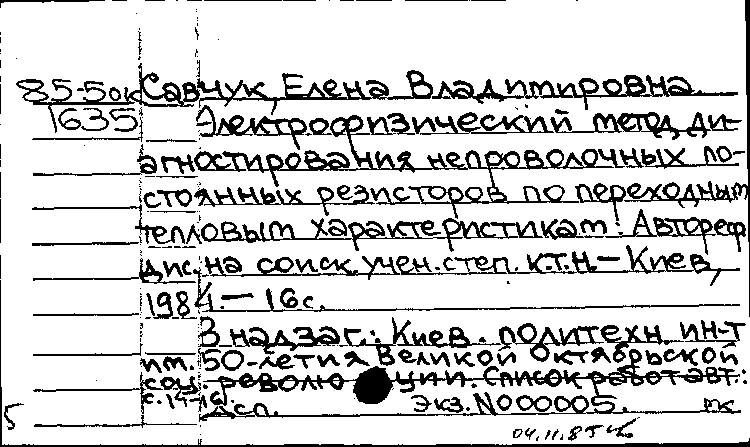 85-5ок Савчук, Елена Владимировна.
1635 Электрофизический метод ди-
агностирования непроволочных по-
стоянных резисторов по переходным
тепловым характеристикам: Автореф
дис. на соиск. учен. степ. к.т.н. — Киев,
1984. — 16с.
В надзаг.: Киев. политехн. ин-т
им. 50-летия Великой Октябрьской
соц. революции. Список работ авт.:
с. 14-16.
Дсп. Экз. N000005.
5 04.11.85